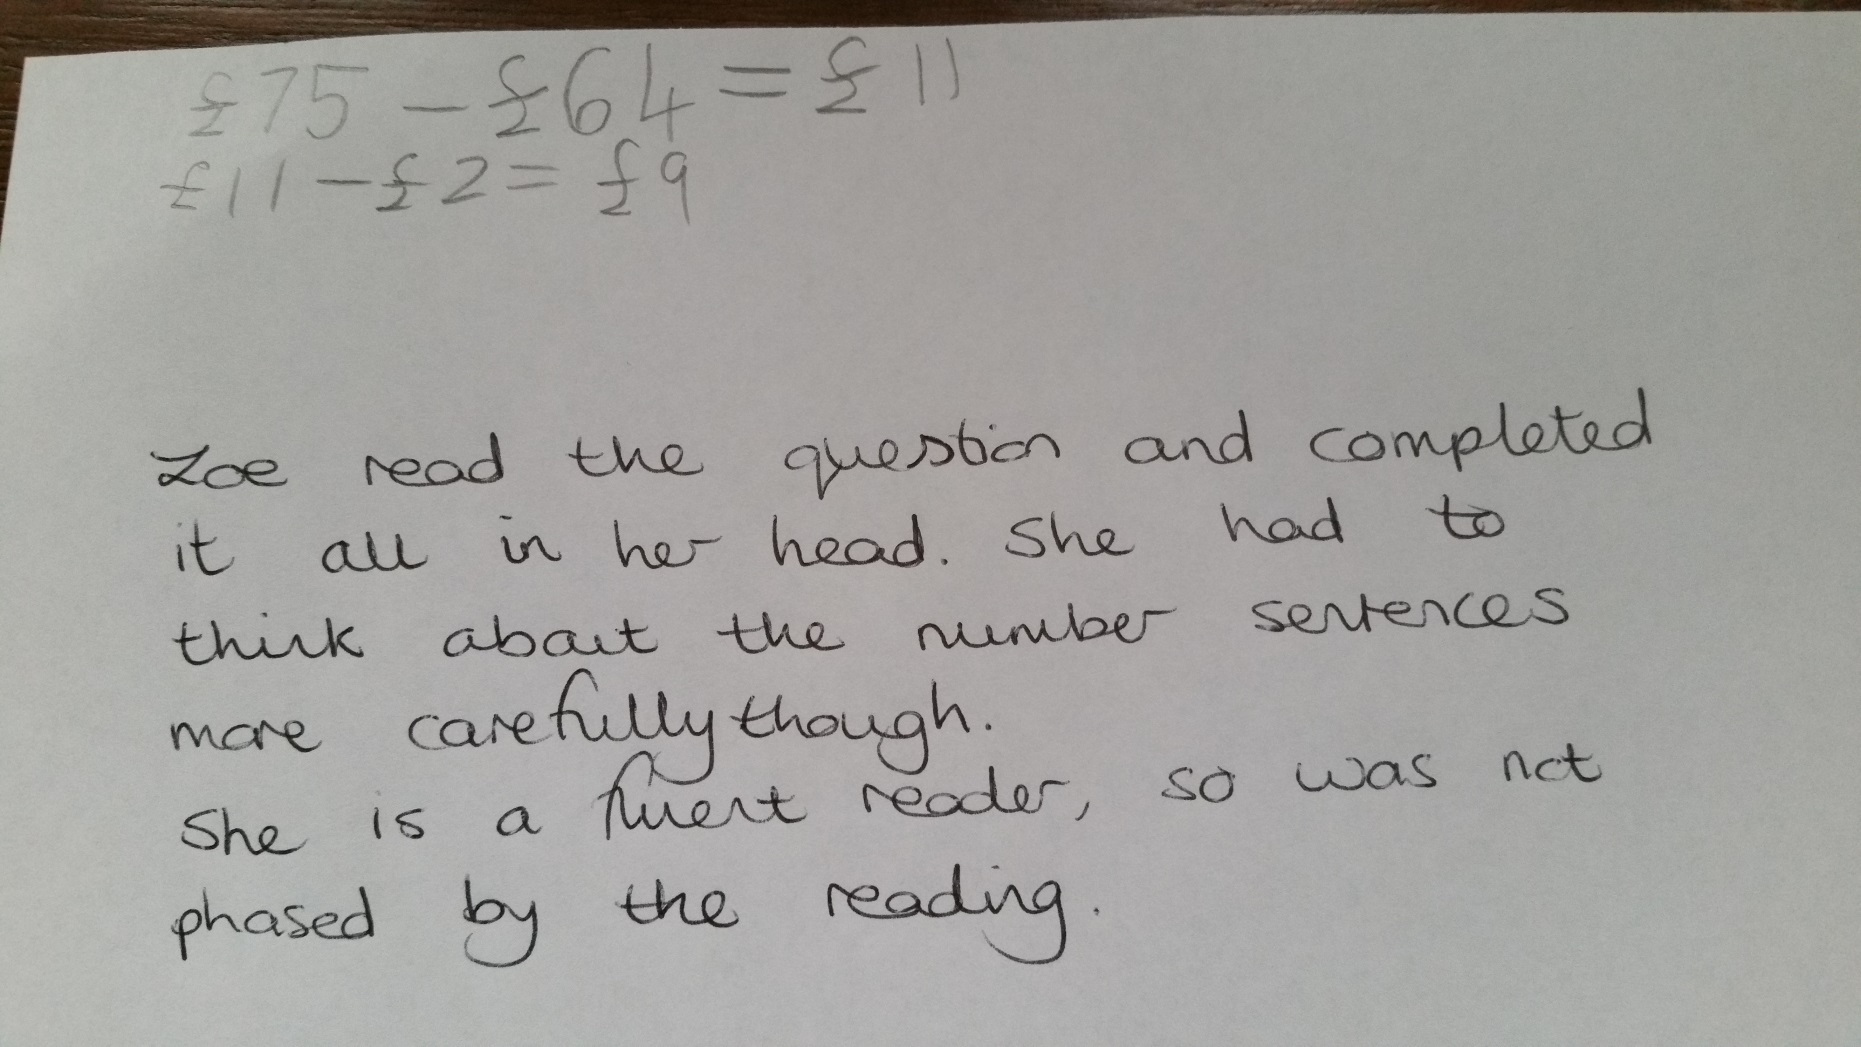 £75 - £64 = £11
£11 - £2 = £9
Zoe read the question and completed
it all in her head. She had to
think about the number sentences
more carefully though.
She is a fluent reader, so was not
phased by the reading.